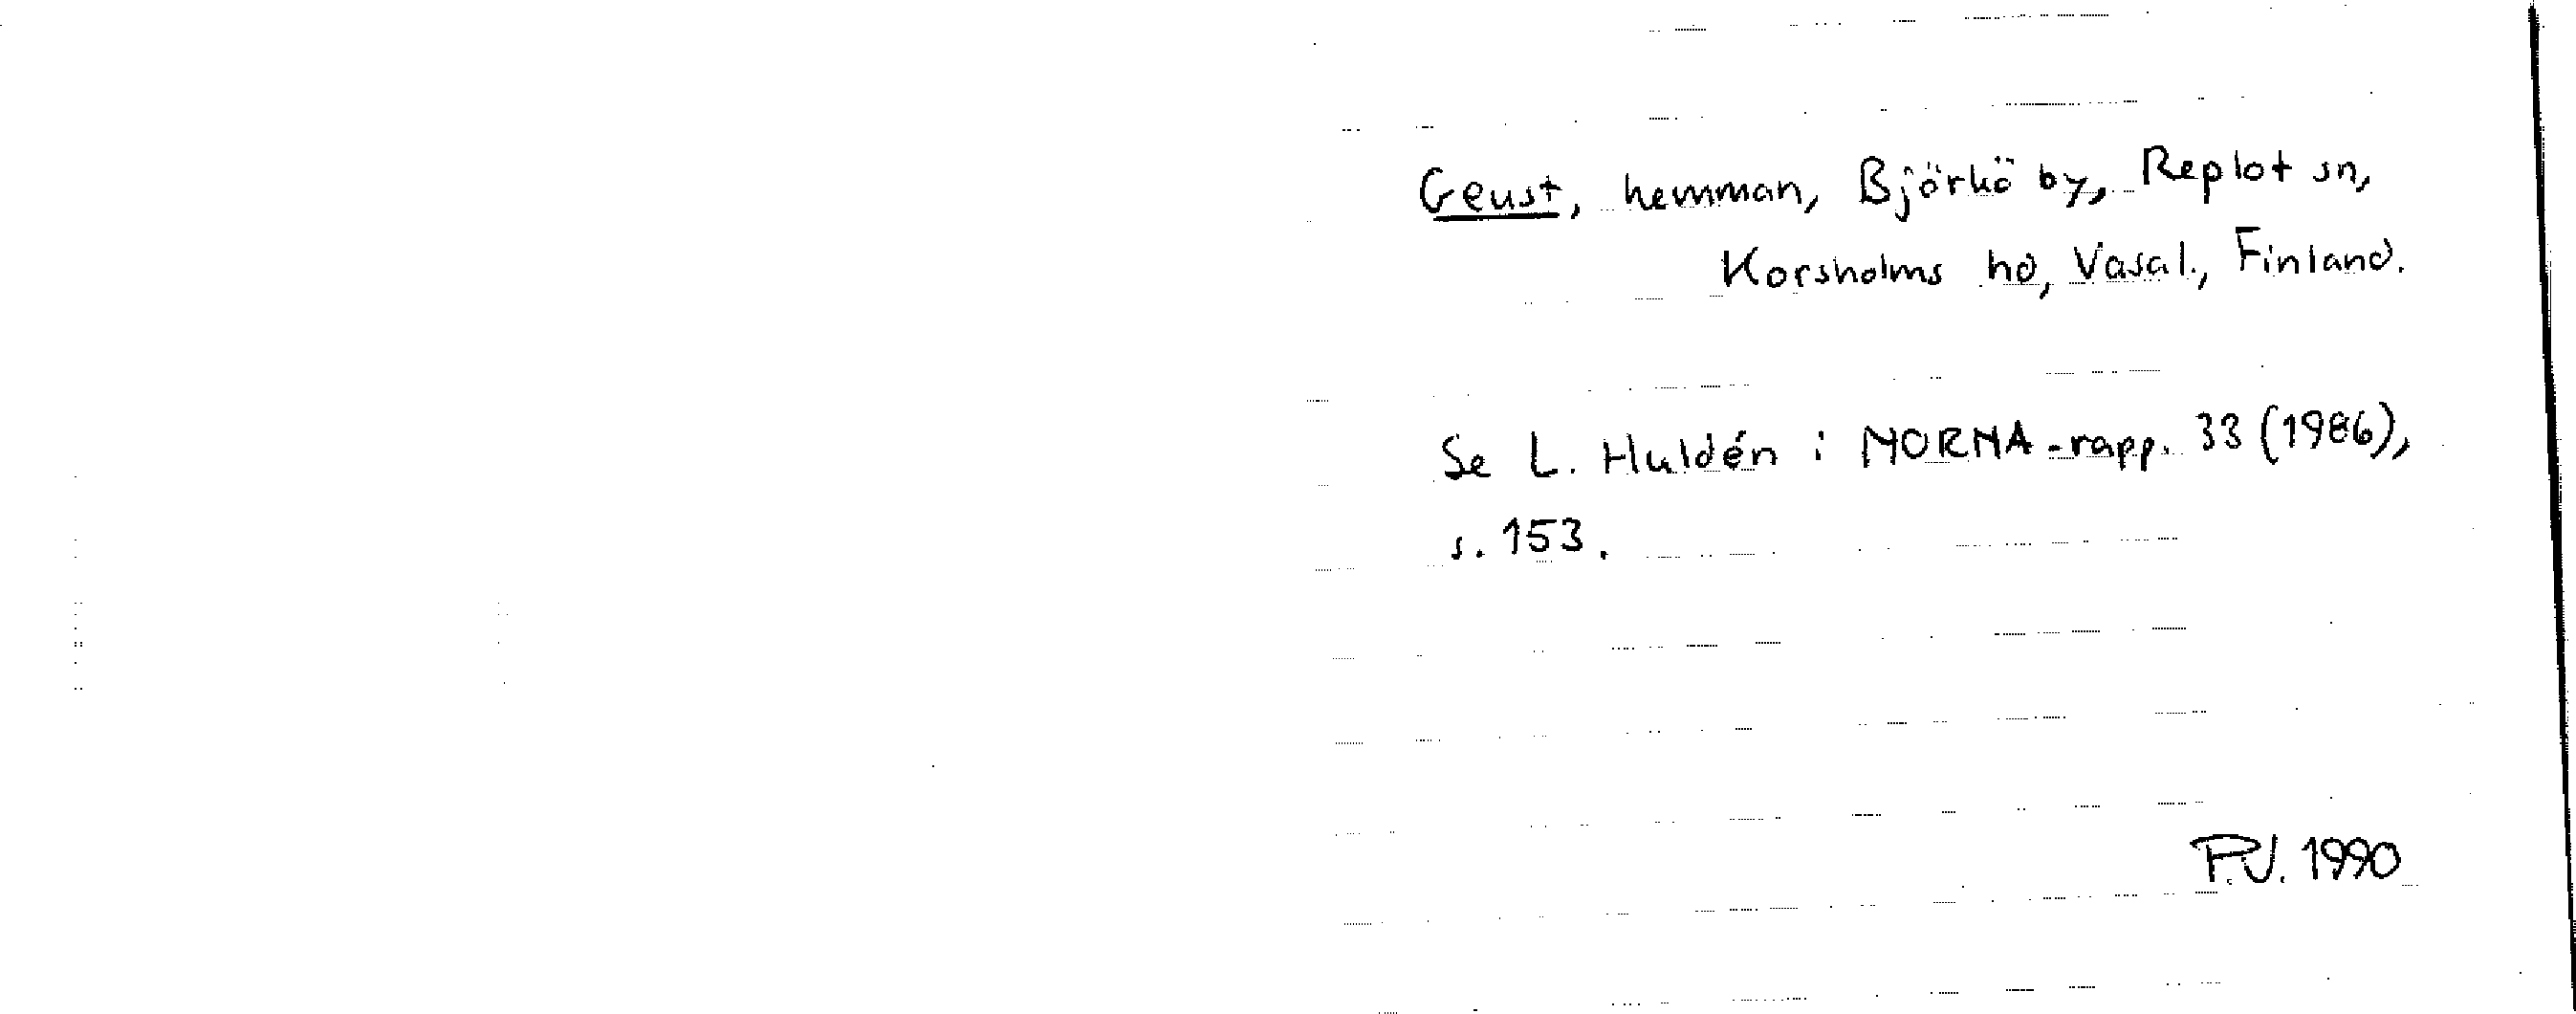 Geust, hemman, Björkö by, Replot sn,
Korsholms hd, Vasal., Finland.
Se L. Huldén i NORNA-rapp. 33 (1986),
s. 153.
P.J. 1990